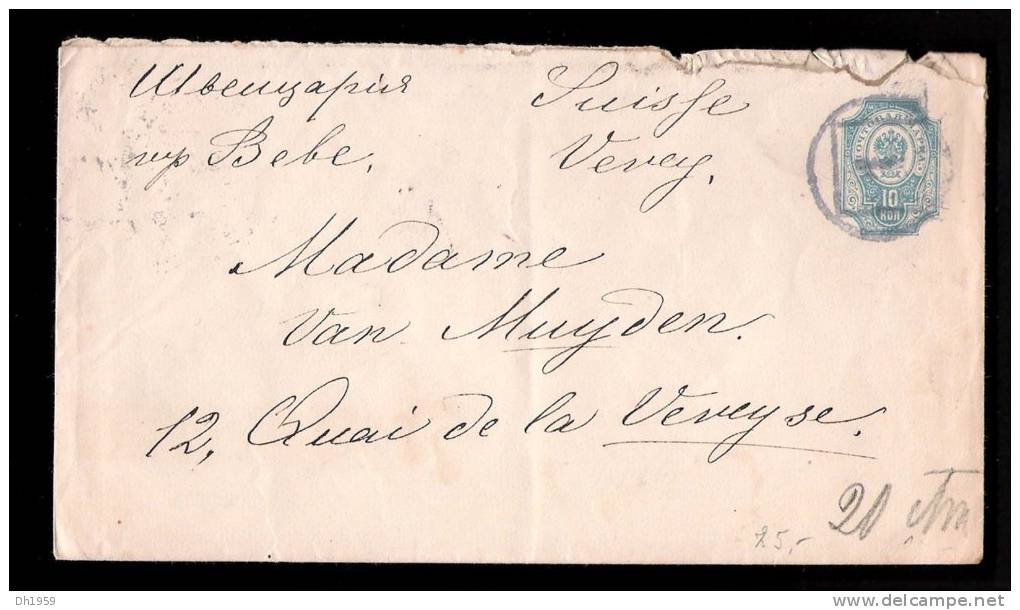 Швейцарія Suisse
гр Веве, Vevey,
Madame
Van Muyden.
12, Quai de la Veveyse.
ПОЧТОВАЯ МАРКА
10
КОП
20
25,-
DH1959
delcampe.net